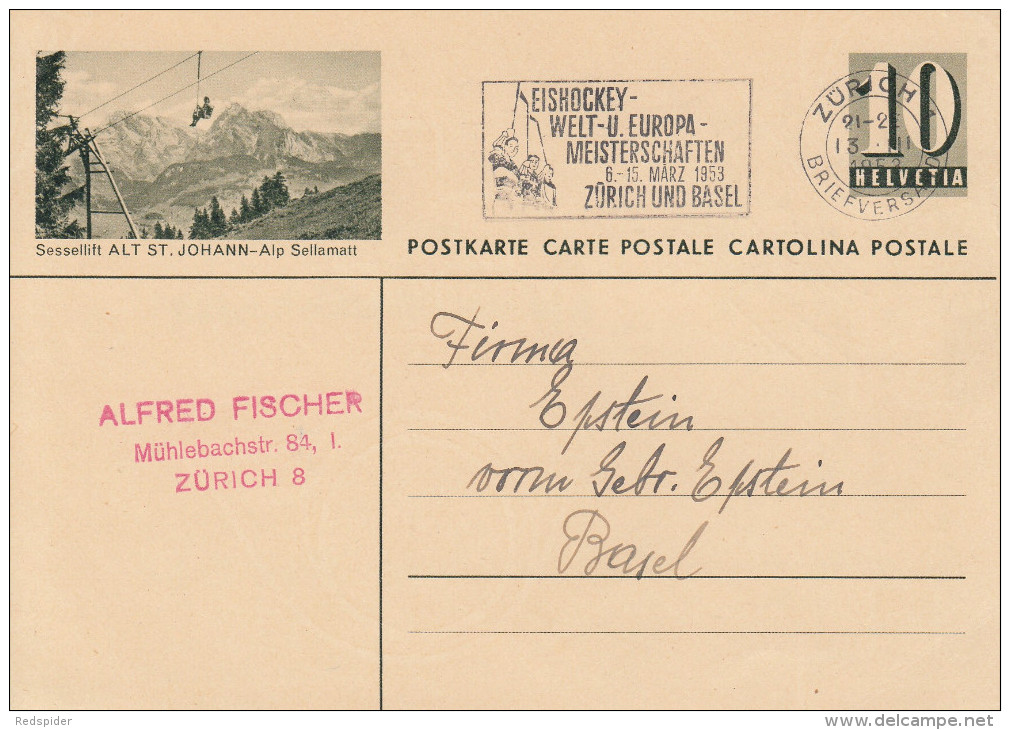 EISHOCKEY-
WELT-U. EUROPA-
MEISTERSCHAFTEN
6.-15. MÄRZ 1953
ZÜRICH UND BASEL
ZÜRICH 1
21-2
13 II
BRIEFVERSAND
10
HELVETIA
Sessellift ALT ST. JOHANN-Alp Sellamatt
POSTKARTE CARTE POSTALE CARTOLINA POSTALE
ALFRED FISCHER
Mühlebachstr. 84, I.
ZÜRICH 8
Firma
Epstein
vorm Gebr. Epstein
Basel
Redspider
delcampe.net